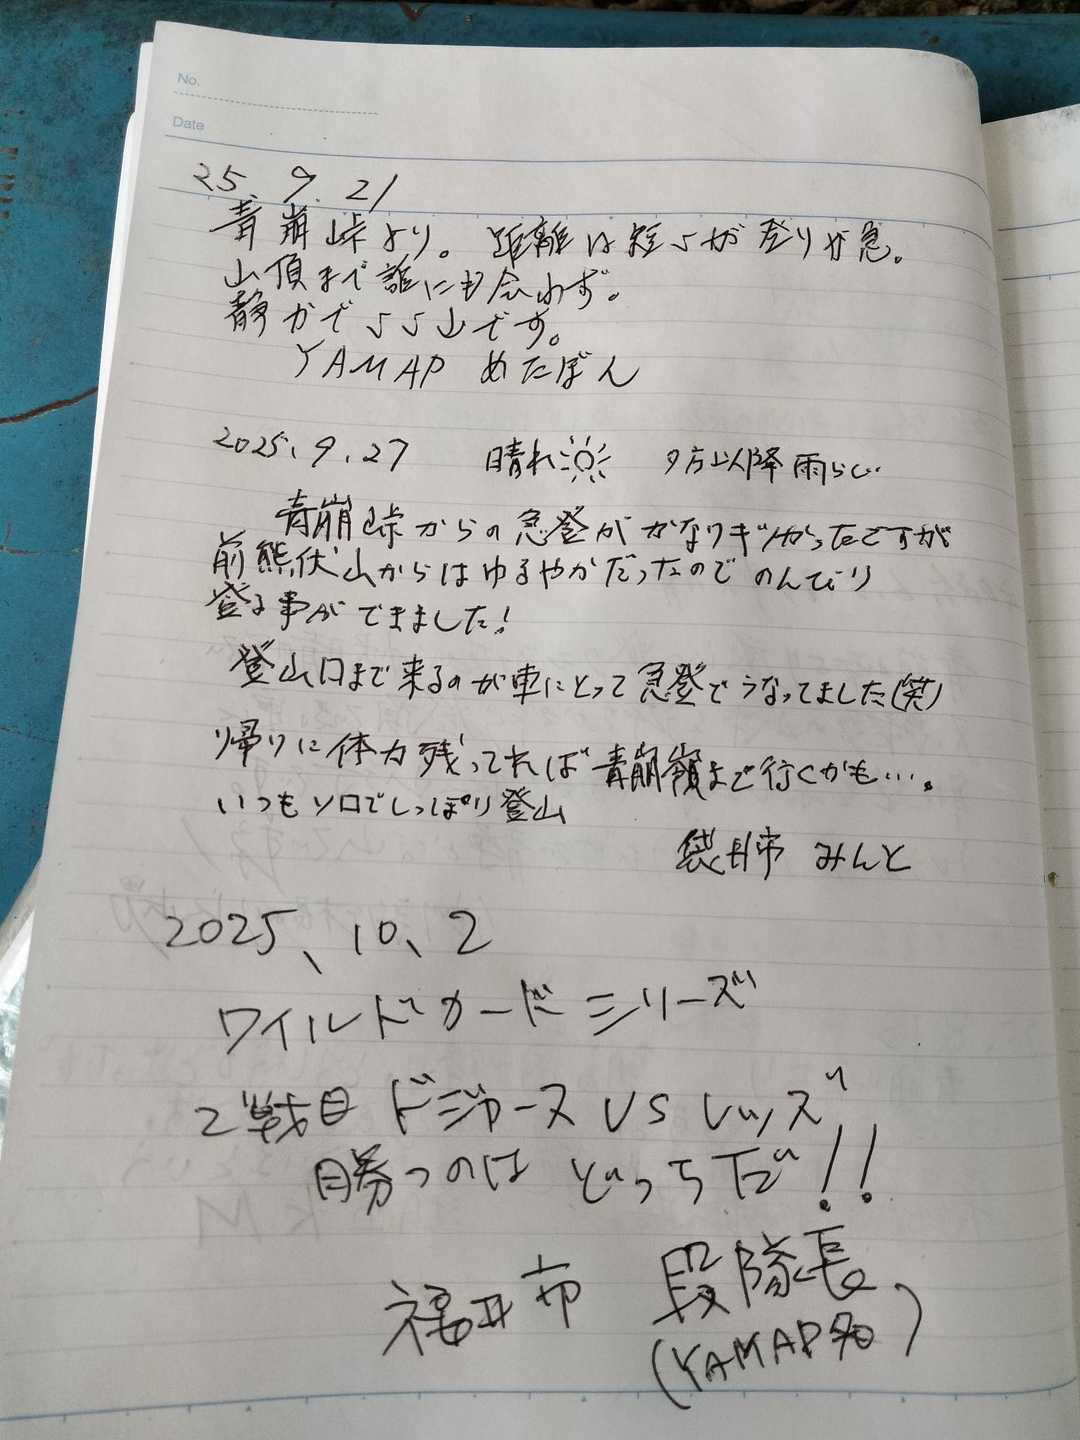 No.
Date
25.9.21
青崩峠より。距離は短いが登りが急。
山頂まで誰にも会わず。
静かでいい山です。
YAMAP めたぼん
2025.9.27 晴れ 夕方以降雨らしい
青崩峠からの急登がかなりキツかったですが
前熊伏山からはゆるやかだったのでのんびり
登る事ができました!
登山口まで来るのが車にとって急登でうなってました(笑)
帰りに体力残ってれば青崩嶺まで行くかも…。
いつもソロでしっぽり登山
袋井市 みんと
2025、10、2
ワイルドカードシリーズ
2戦目 ドジャース VS レッズ
勝つのは どっちだ!!
福井市 段隊長
(YAMAP名)